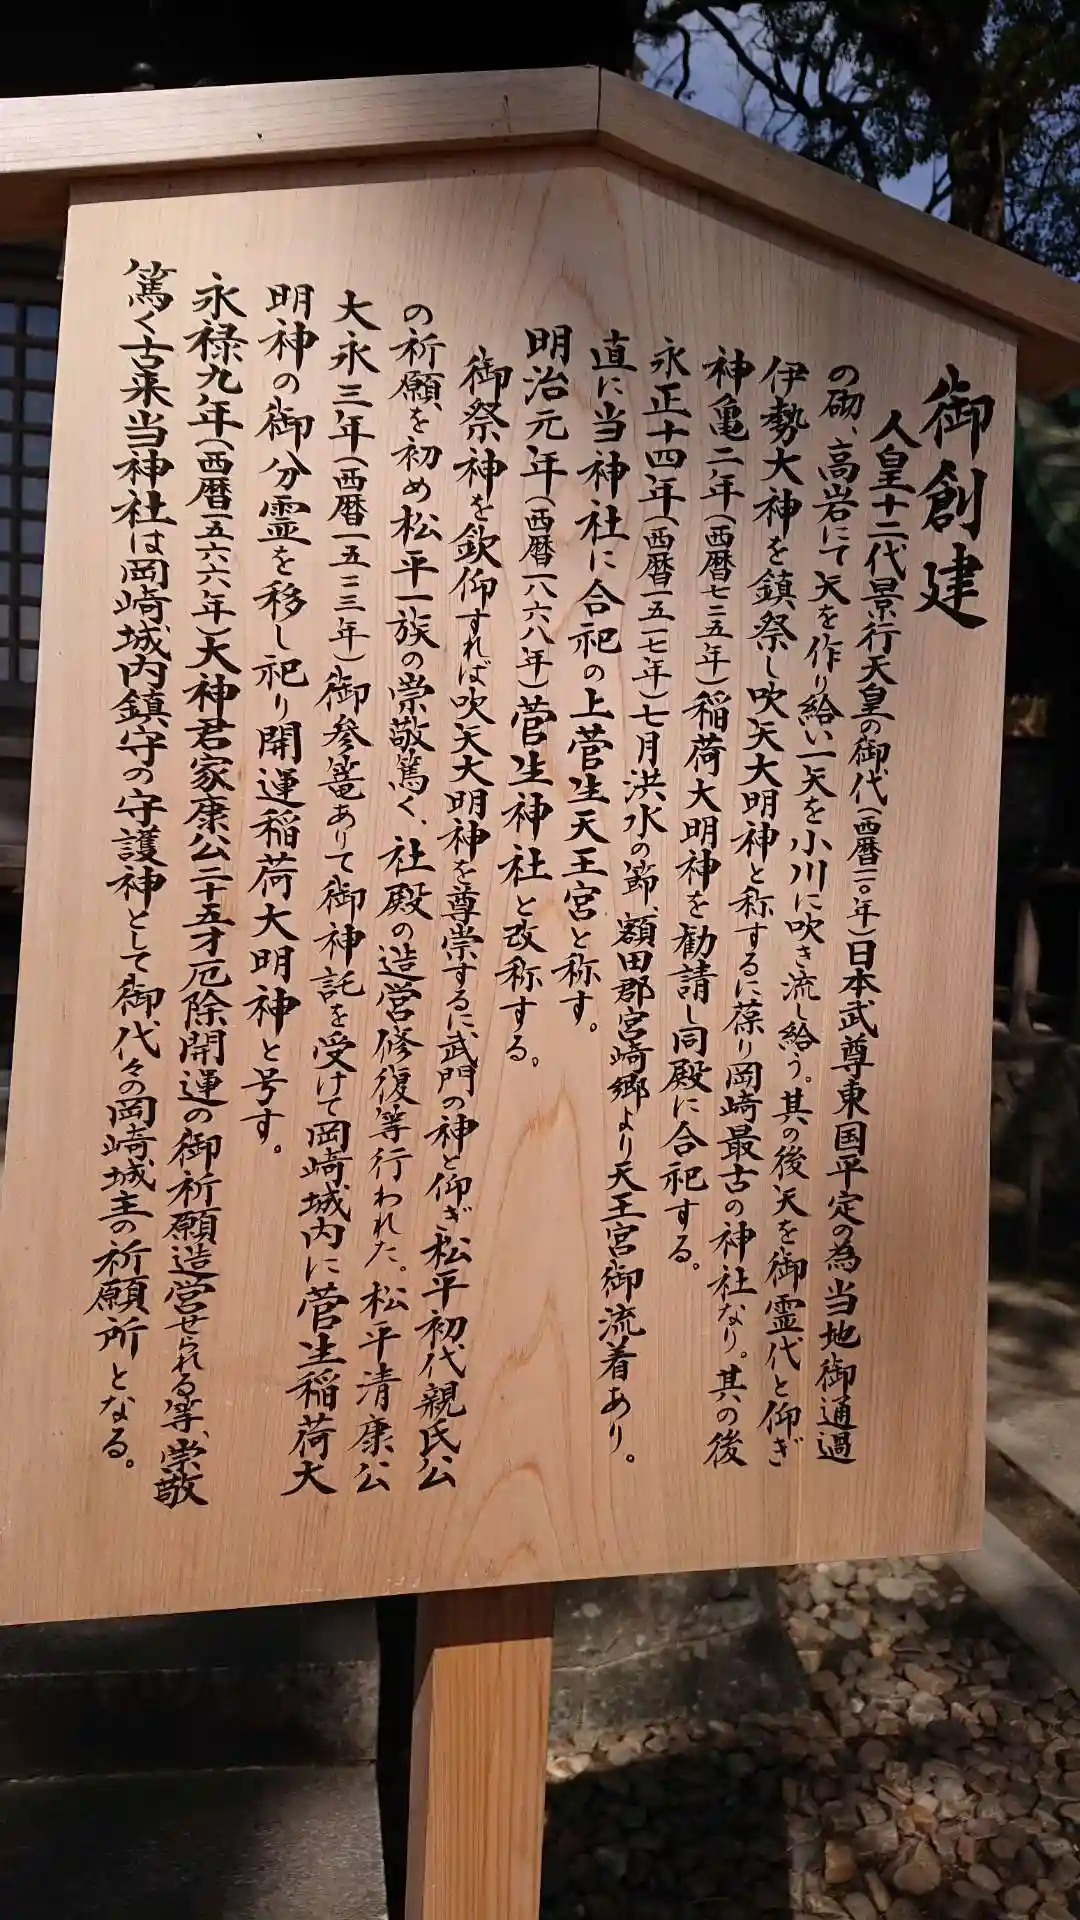 御創建
人皇十二代景行天皇の御代（西暦一一〇年）日本武尊東国平定の為当地御通過
の砌、高岩にて矢を作り給い一矢を小川に吹き流し給う。其の後矢を御霊代と仰ぎ
伊勢大神を鎮祭し吹矢大明神と称するに葆り岡崎最古の神社なり。其の後
神亀二年（西暦七二五年）稲荷大明神を勧請し同殿に合祀する。
永正十四年（西暦一五一七年）七月洪水の節、額田郡宮崎郷より天王宮御流着あり。
直に当神社に合祀の上菅生天王宮と称す。
明治元年（西暦一八六八年）菅生神社と改称する。
御祭神を欽仰すれば吹矢大明神を尊崇するに武門の神と仰ぎ松平初代親氏公
の祈願を初め松平一族の崇敬篤く、社殿の造営修復等行われた。松平清康公
大永三年（西暦一五二三年）御参篭ありて御神託を受けて岡崎城内に菅生稲荷大
明神の御分霊を移し祀り開運稲荷大明神と号す。
永禄九年（西暦一五六六年）大神君家康公二十五才厄除開運の御祈願造営せられる等、崇敬
篤く古来当神社は岡崎城内鎮守の守護神として御代々の岡崎城主の祈願所となる。